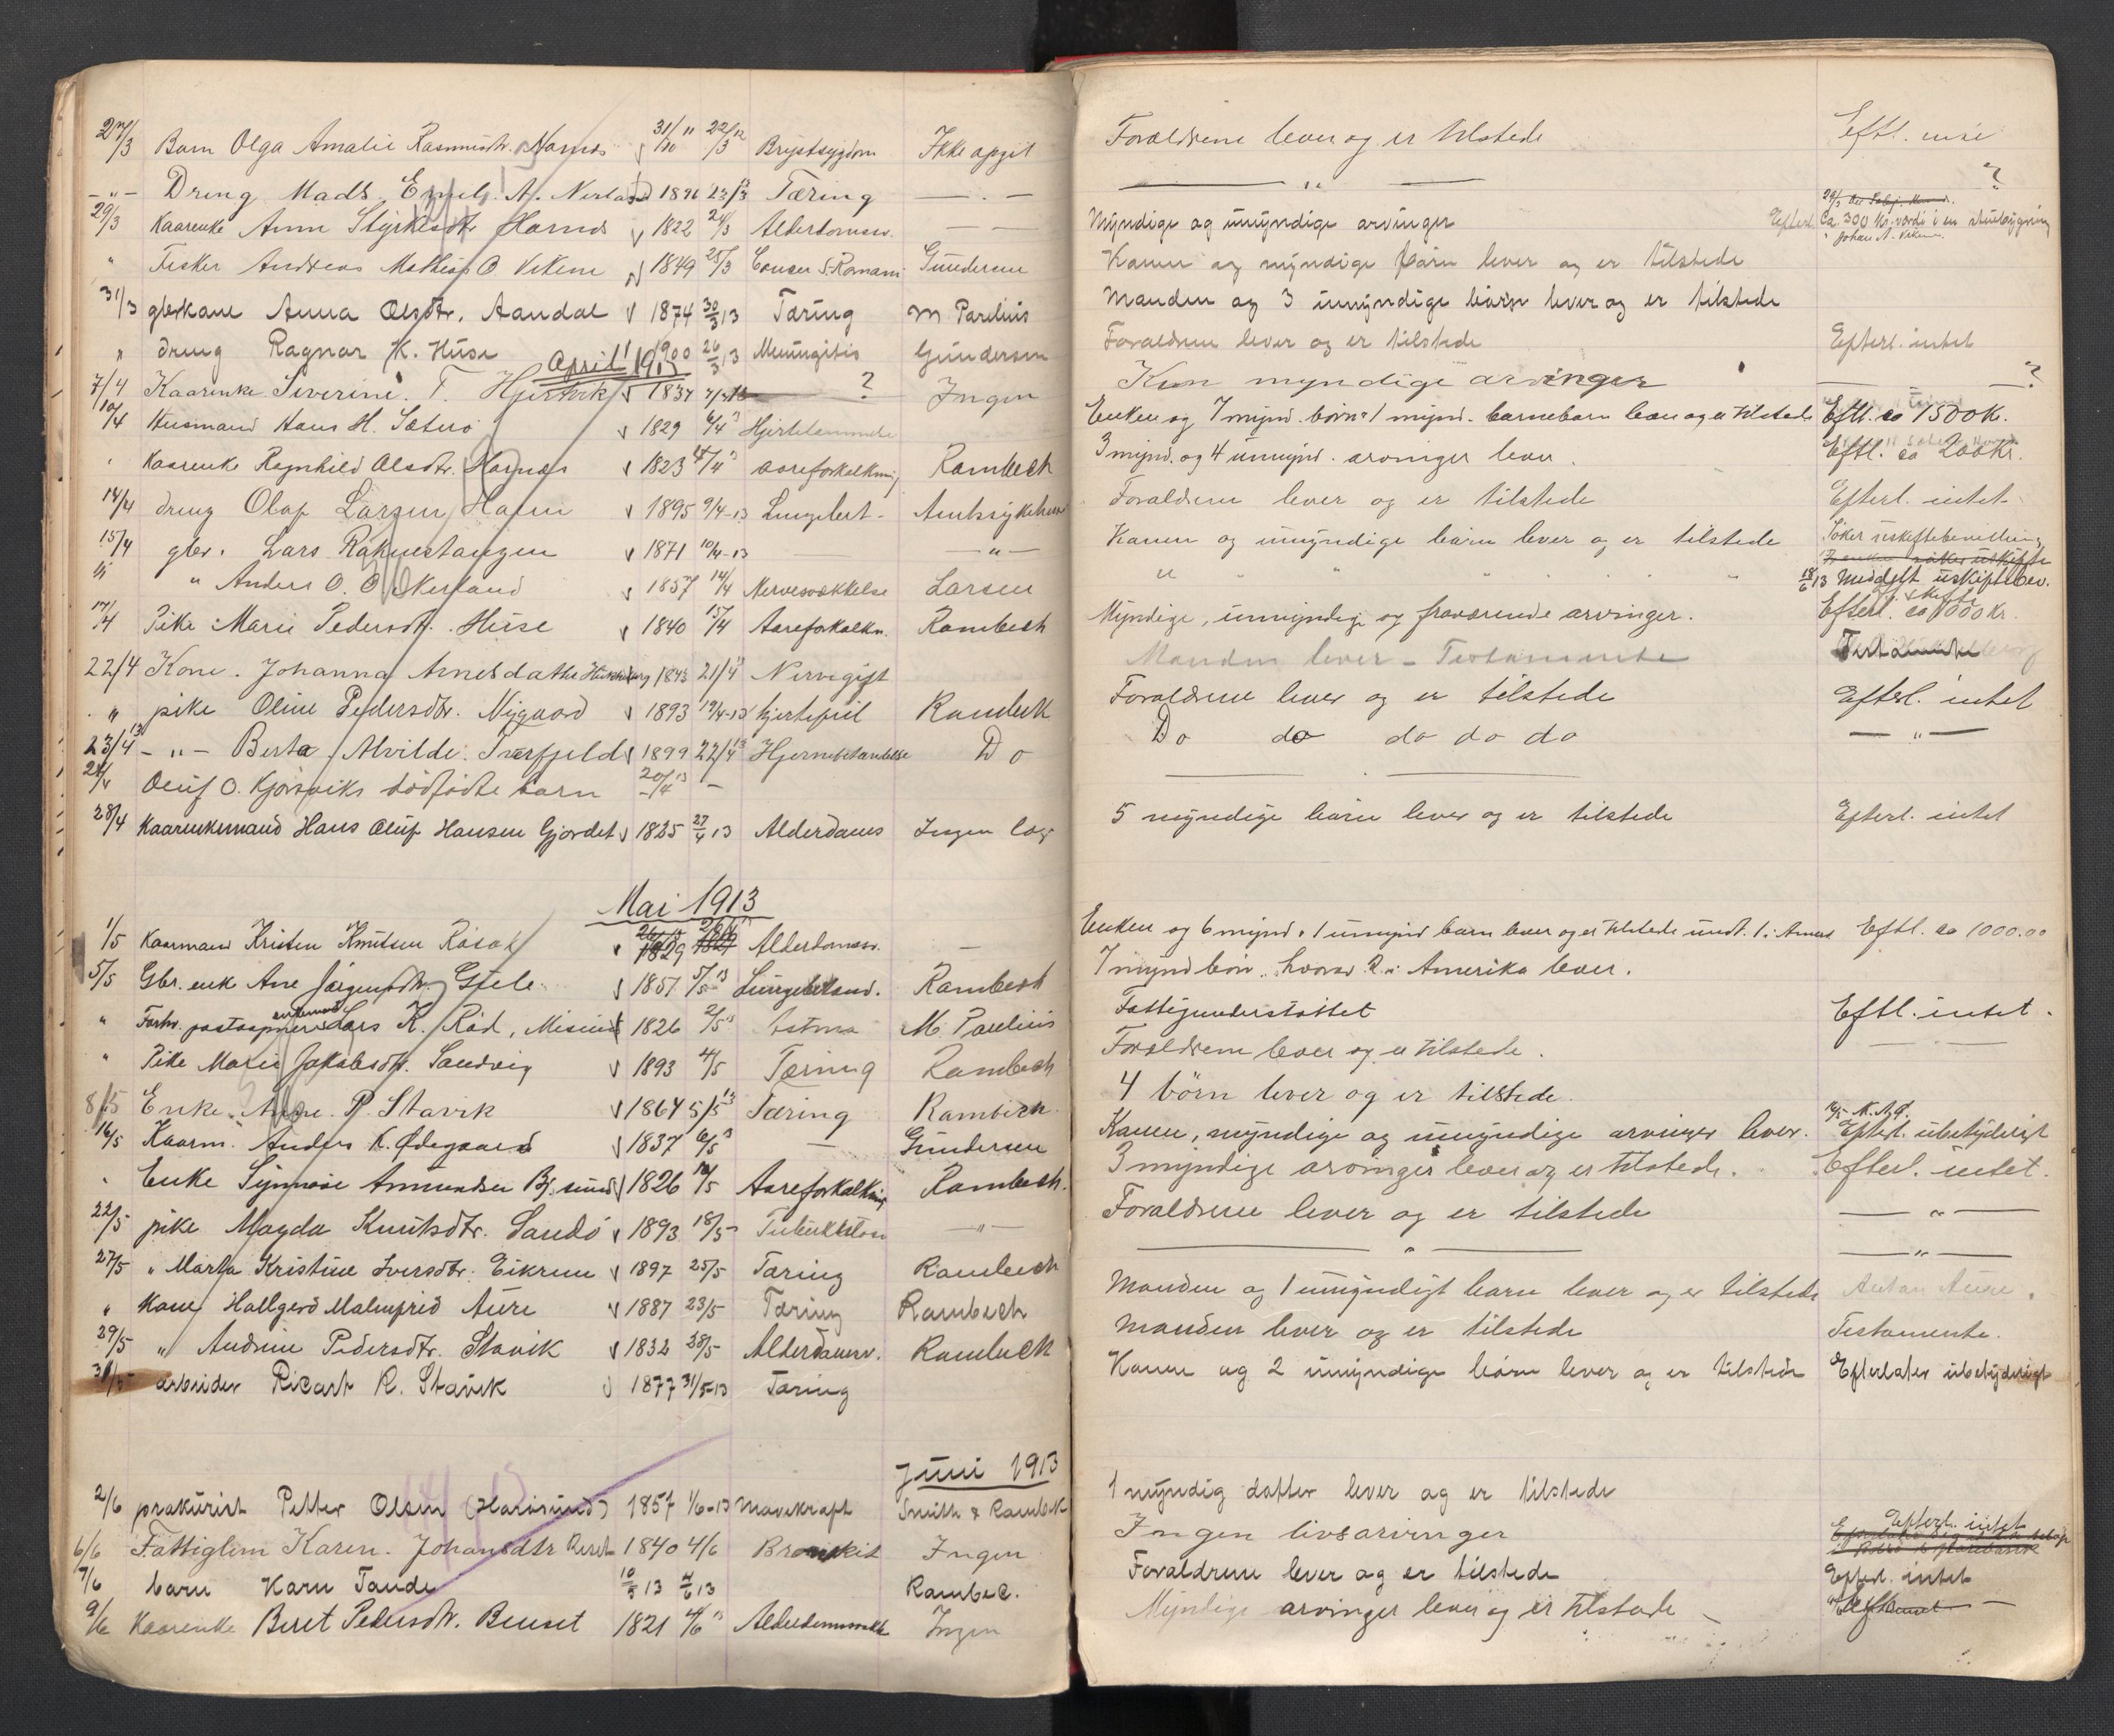 27/3 Barn Olga Amalie Rasmusdtr. Harnes 31/10 11 22/3 12 Brystsygdom Ikke opgit Forældrene lever og er tilstede Eftl. intet
-"- Dreng Mads Nerland 1896 23/3 13 Tæring — " — — " — ?
29/3 Kaarenke Anne Styrksdtr Harnes 1822 24/3 Alderdomssv. — Myndige og umyndige arvinger Efterl. Ca. 300 kr. værdi i en stuebygning
" Fisker Andreas Mathias O. Vikene 1849 25/3 Gundersen Konen og myndige børn lever og er tilstede Johan A. Vikene
31/3 gbrkone Anna Olsdtr. Aandal 1874 30/3 13 Tæring M Parelius Manden og 3 umyndige børn lever og er tilstede
" dreng Ragnar K. Huse 1900 26/3 13 Meningitis Gundersen Forældrene lever og er tilstede Efterl. intet
April 1913
7/4 Kaarenke Severine F. Hjertvik 1837 ? Ingen Kun myndige arvinger — ?
10/4 Husmand Hans H. Sæterø 1829 6/4 13 Hjertelammelse Enken og 7 mynd. børn 1 mynd. barnebarn lever og er tilstede Eftl. ca 1500 Kr.
" Kaarenke Ragnhild Olsdtr. Harnes 1823 aareforkalkning Rambech 3 mynd. og 4 umynd. arvinger lever. Eftl. ca 200 Kr.
14/4 dreng Olaf Larsen Hamn 1895 9/4-13 Lungebet- Amtsykehus Forældrene lever og er tilstede Efterl. intet
15/4 gbr. Lars Raknestangen 1871 10/4-13 — — " — Konen og umyndige børn lever og er tilstede Søker uskiftebevilling
" " Anders O. Nerland 1857 14/4 Nervesvækkelse Larsen " " " " " 18/6 13 Meddelt uskiftebev.
17/4 Pike Marie Pedersdtr. Huse 1840 15/4 Aareforkalkn. Rambech Myndige, umyndige og fraværende arvinger. Efterl. ca 1000 kr.
22/4 Kone. Johanna Arnesdatter 1843 21/4 13 Nervegigt Manden lever - Testamente Testamente
" pike Oline Pedersdtr. Nygaard 1893 19/4-13 hjertefeil Rambech Forældrene lever og er tilstede Efterl. intet
23/4 13 - " - Berta Alvilde Tverfjeld 1899 22/4 13 Hjernebetændelse Do Do do do do do — " —
24/4 Oluf O. Kjørsviks dødfødte barn 20/4 13 — —
28/4 Kaarenkemand Hans Oluf Hansen Gjerdet 1825 27/4 13 Alderdoms Ingen læge 5 myndige børn lever og er tilstede Efterl. intet
Mai 1913
1/5 Kaarmand Kristen Knutsen Røsok 1829 Alderdomssv. — Enken og 6 mynd. + 1 umynd barn lever og er tilstede undt. 1 i Amer. Eftl. ca 1000.00
5/5 Gbr. enke Ane Jørgensdtr. Gjele 1851 5/5 13 Lungebetænd. Rambech 7 mynd børn hvorav 2 i Amerika lever.
" Forhv. postaapner enkemand Lars K. Rød, Misund 1826 2/5 13 Astma M. Parelius Fattigunderstøttet Eftl. intet.
" Pike Marie Jakobsdtr. Sandvig 1893 4/5 Tæring Rambech Forældrene lever og er tilstede. — " —
8/5 Enke. Anne. P. Stavik 1864 5/5 13 Tæring Rambech 4 børn lever og er tilstede.
16/5 Kaarm. Anders K. Ødegaard 1837 6/5 13 — Gundersen Konen, myndige og umyndige arvinger lever. Efterl. ubetydeligt
" Enke Synnøve Amundsen Bj.sund 1826 10/5 Aareforkalkning Rambech. 3 myndige arvinger lever og er tilstede. Efterl. intet.
22/5 pike Magda Knutsdtr. Sandø 1893 18/5 Tuberkulose — " — Forældrene lever og er tilstede — " —
27/5 " Marta Kristine Iversdtr. Eikrem 1897 25/5 Tæring Rambech — " — — " —
" Kone Hallgerd Malmfrid Aure 1887 23/5 Tæring Rambech Manden og 1 umyndigt barn lever og er tilstede Anton Aure.
29/5 " Andrine Pedersdtr. Stavik 1832 28/5 Alderdomssv. Rambech Manden lever og er tilstede Testamente.
31/5 arbeider Rikart R. Stavik 1877 31/5-13 Tæring Konen og 2 umyndige børn lever og er tilstede Efterlater ubetydeligt
Juni 1913
2/6 prokurist Petter Olsen (Harøsund) 1857 1/6-13 Mavekraft Smith & Rambech 1 myndig datter lever og er tilstede
6/6 Fattiglem Karen. Johansdtr Reset 1840 4/6 Bronkit Ingen Ingen livsarvinger Efterl. intet
7/6 barn Karn Tande 10/5 13 4/6 13 Rambec. Forældrene lever og er tilstede Efterl. intet
9/6 Kaarenke Beret Pedersdtr. Beuset 1821 4/6 13 Alderdomssvakk Ingen Myndige arvinger lever og er tilstede —